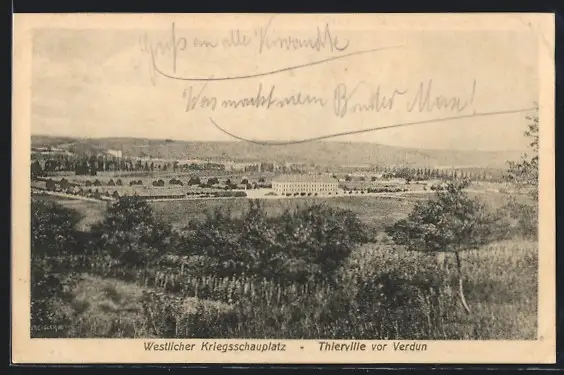 Gruß an alle Verwandte
Was macht mein Bruder Max!
Westlicher Kriegsschauplatz - Thierville vor Verdun